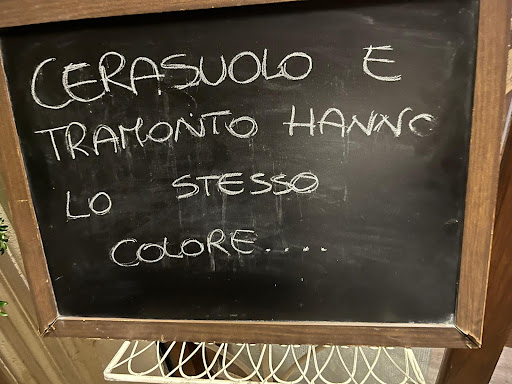 CERASUOLO E
TRAMONTO HANNO
LO STESSO
COLORE....